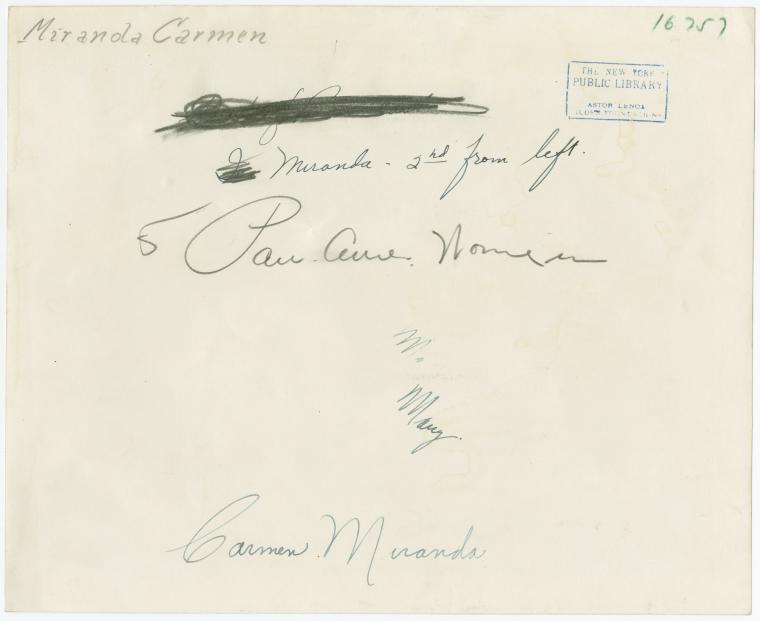 Miranda Carmen
16757
THE NEW YORK
PUBLIC LIBRARY
ASTOR LENOX
TILDEN FOUNDATIONS
Miranda - 2nd from left.
5 Pan. Ame. Women
M
Mary.
Carmen Miranda